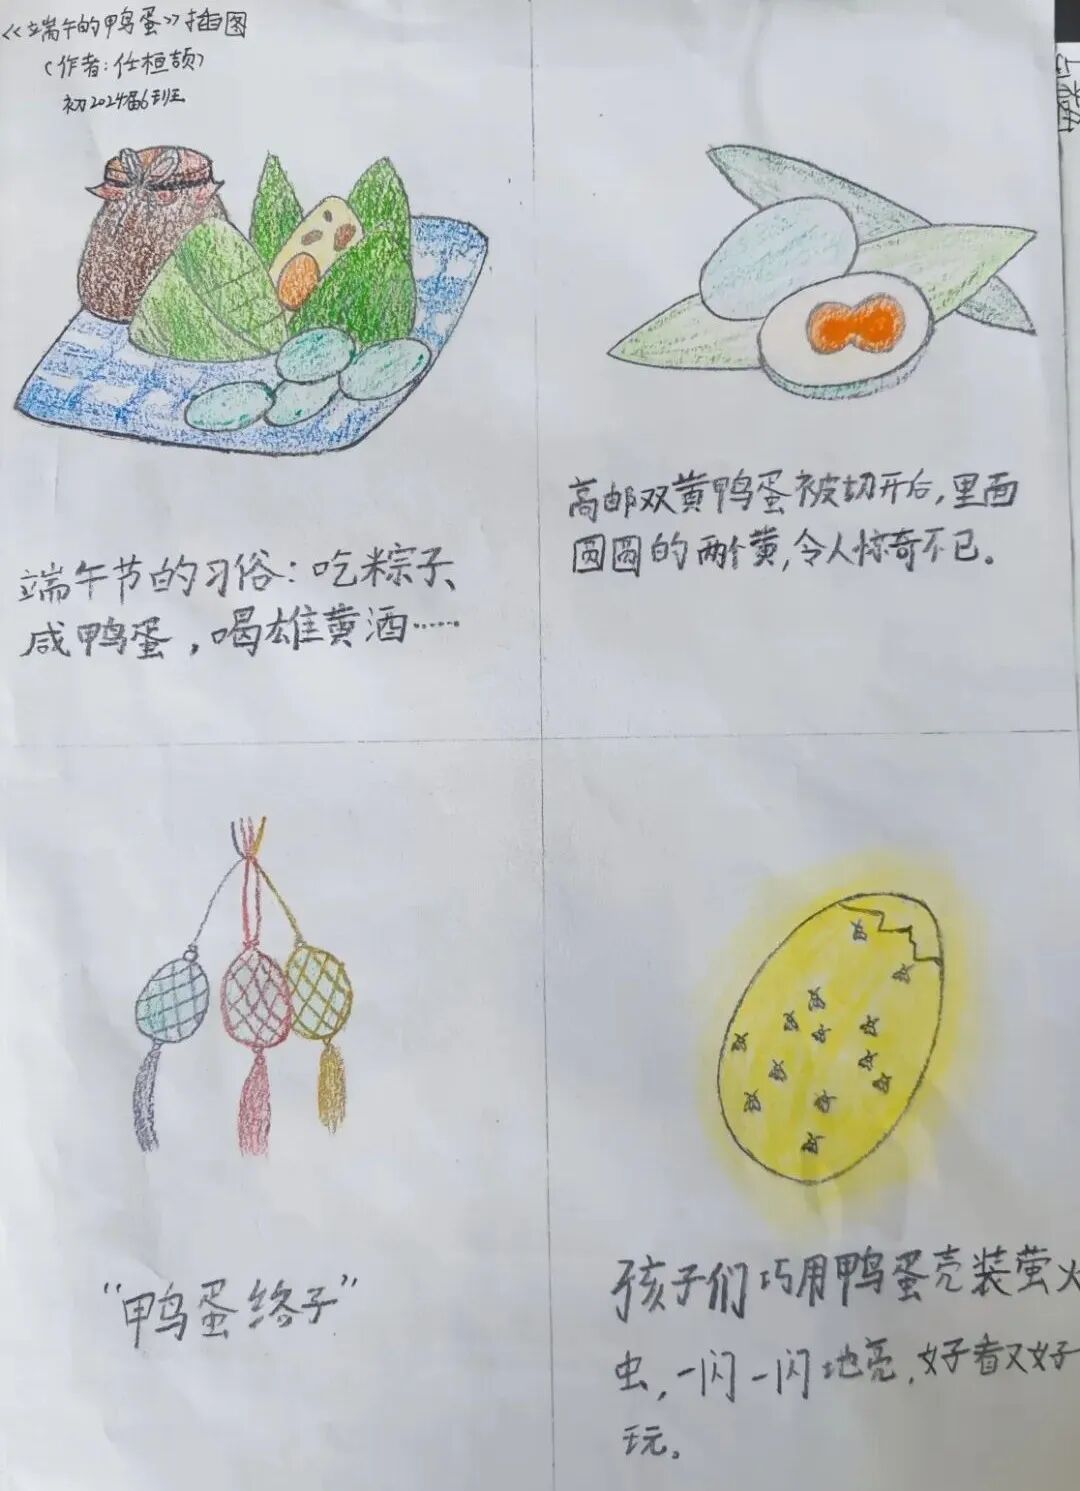 《端午的鸭蛋》插图
(作者:任桓颉)
初2024届6班
端午节的习俗:吃粽子、
咸鸭蛋,喝雄黄酒……
高邮双黄鸭蛋被切开后,里面
圆圆的两个黄,令人惊奇不已。
“鸭蛋络子”
孩子们巧用鸭蛋壳装萤火
虫,一闪一闪地亮,好看又好
玩。